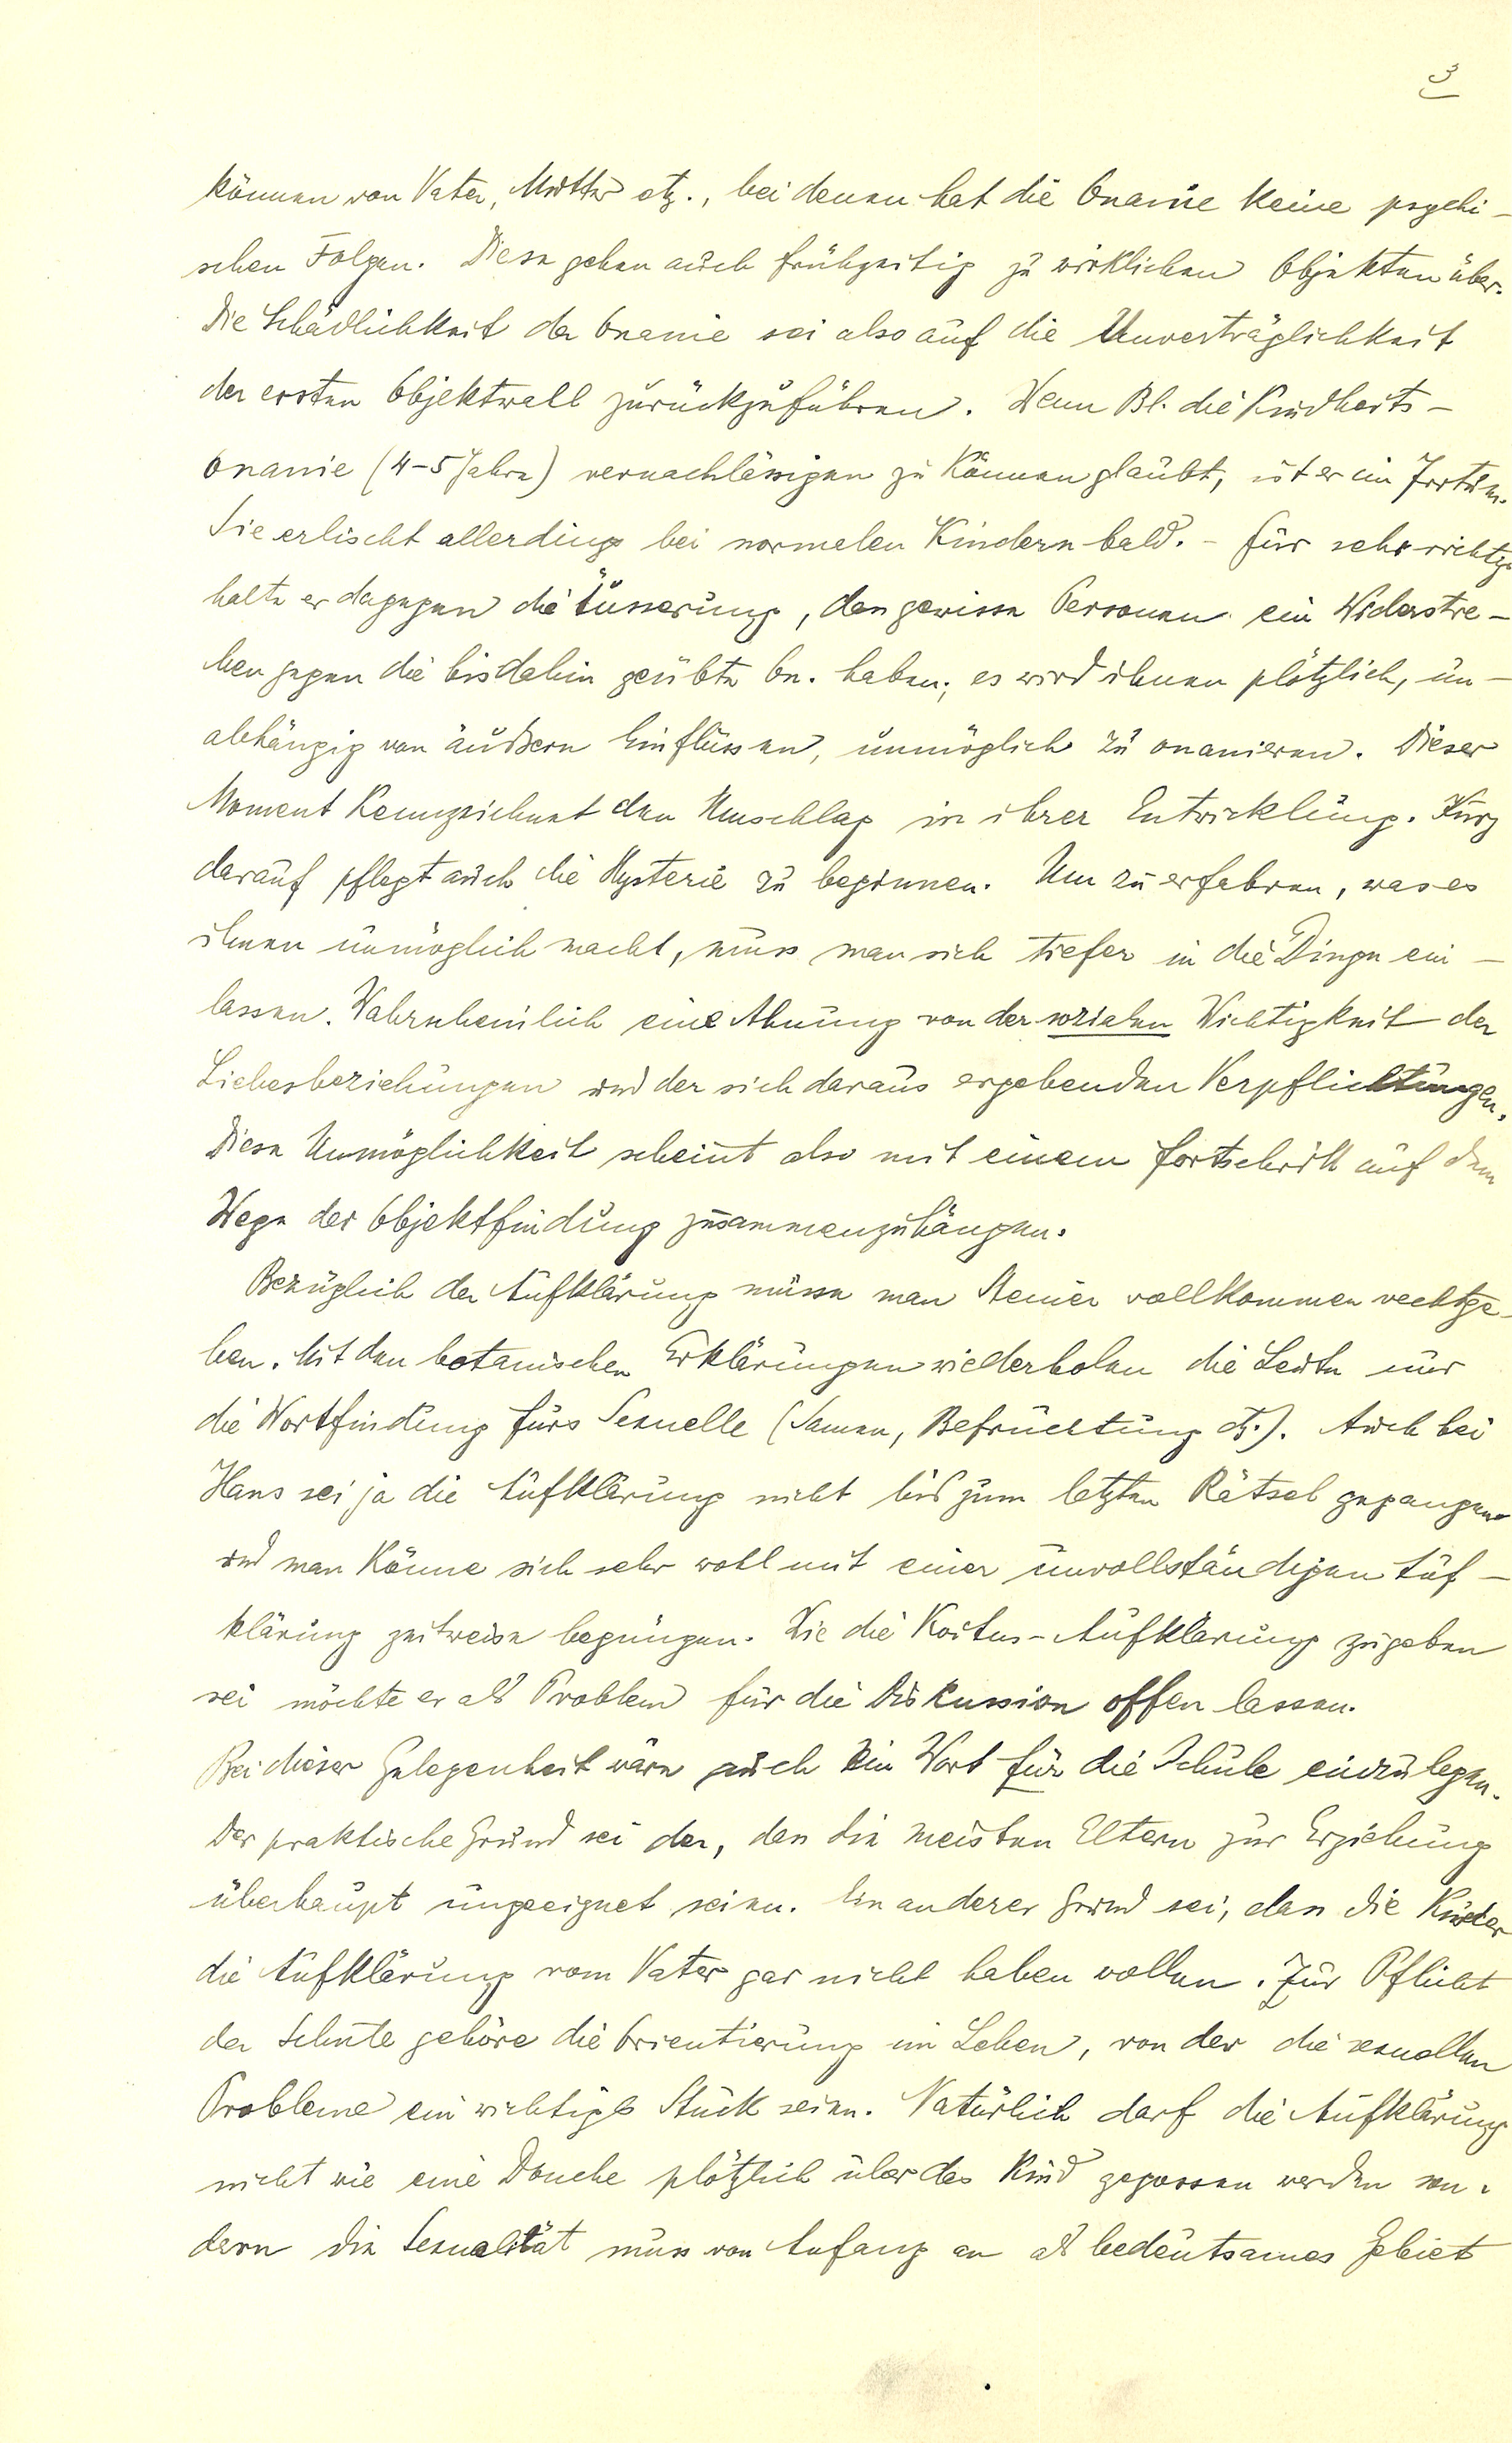 3
können von Vater, Mutter etz., bei denen hat die Onanie keine psychi-
schen Folgen. Diese gehen auch frühzeitig zu wirklichen Objekten über.
Die Schädlichkeit der Onanie sei also auf die Unverträglichkeit
der ersten Objektwall zurückzuführen. Wenn Bl. die Kindheits-
onanie (4-5 Jahre) vernachlässigen zu können glaubt, ist er im Irrtum.
Sie erlischt allerdings bei normalen Kindern bald. - für sehr richtig
halte er dagegen die Äusserung, dass gewisse Personen ein Widerstre-
ben gegen die bisdahin geübte On. haben; es wird ihnen plötzlich, un-
abhängig von äußern Einflüssen, unmöglich zu onanieren. Dieser
Moment kennzeichnet den Umschlag in ihrer Entwicklung. Kurz
darauf pflegt auch die Hysterie zu beginnen. Um zu erfahren, was es
ihnen unmöglich macht, muss man sich tiefer in die Dinge ein-
lassen. Wahrscheinlich eine Ahnung von der sozialen Wichtigkeit der
Liebesbeziehungen und der sich daraus ergebenden Verpflichtungen.
Diese Unmöglichkeit scheint also mit einem Fortschritt auf dem
Wege der Objektfindung zusammenzuhängen.
Bezüglich der Aufklärung müsse man Steiner vollkommen rechtge-
ben. Mit den botanischen Erklärungen wiederholen die Leute nur
die Wortfindung fürs Sexuelle (Samen, Befruchtung etz.). Auch bei
Hans sei ja die Aufklärung nicht bis zum letzten Rätsel gegangen
und man könne sich sehr wohl mit einer unvollständigen Auf-
klärung zeitweise begnügen. Wie die Koitus-Aufklärung zugeben
sei möchte er als Problem für die Diskussion offen lassen.
Bei dieser Gelegenheit wäre auch ein Wort für die Schule einzulegen.
Der praktische Grund sei der, dass die meisten Eltern zur Erziehung
überhaupt ungeeignet seien. Ein anderer Grund sei, dass die Kinder
die Aufklärung vom Vater gar nicht haben wollen. Zur Pflicht
der Schule gehöre die Orientierung im Leben, von der die sexuellen
Probleme ein wichtiges Stück seien. Natürlich darf die Aufklärung
nicht wie eine Douche plötzlich über das Kind gegossen werden son-
dern die Sexualität muss von Anfang an als bedeutsames Gebiet